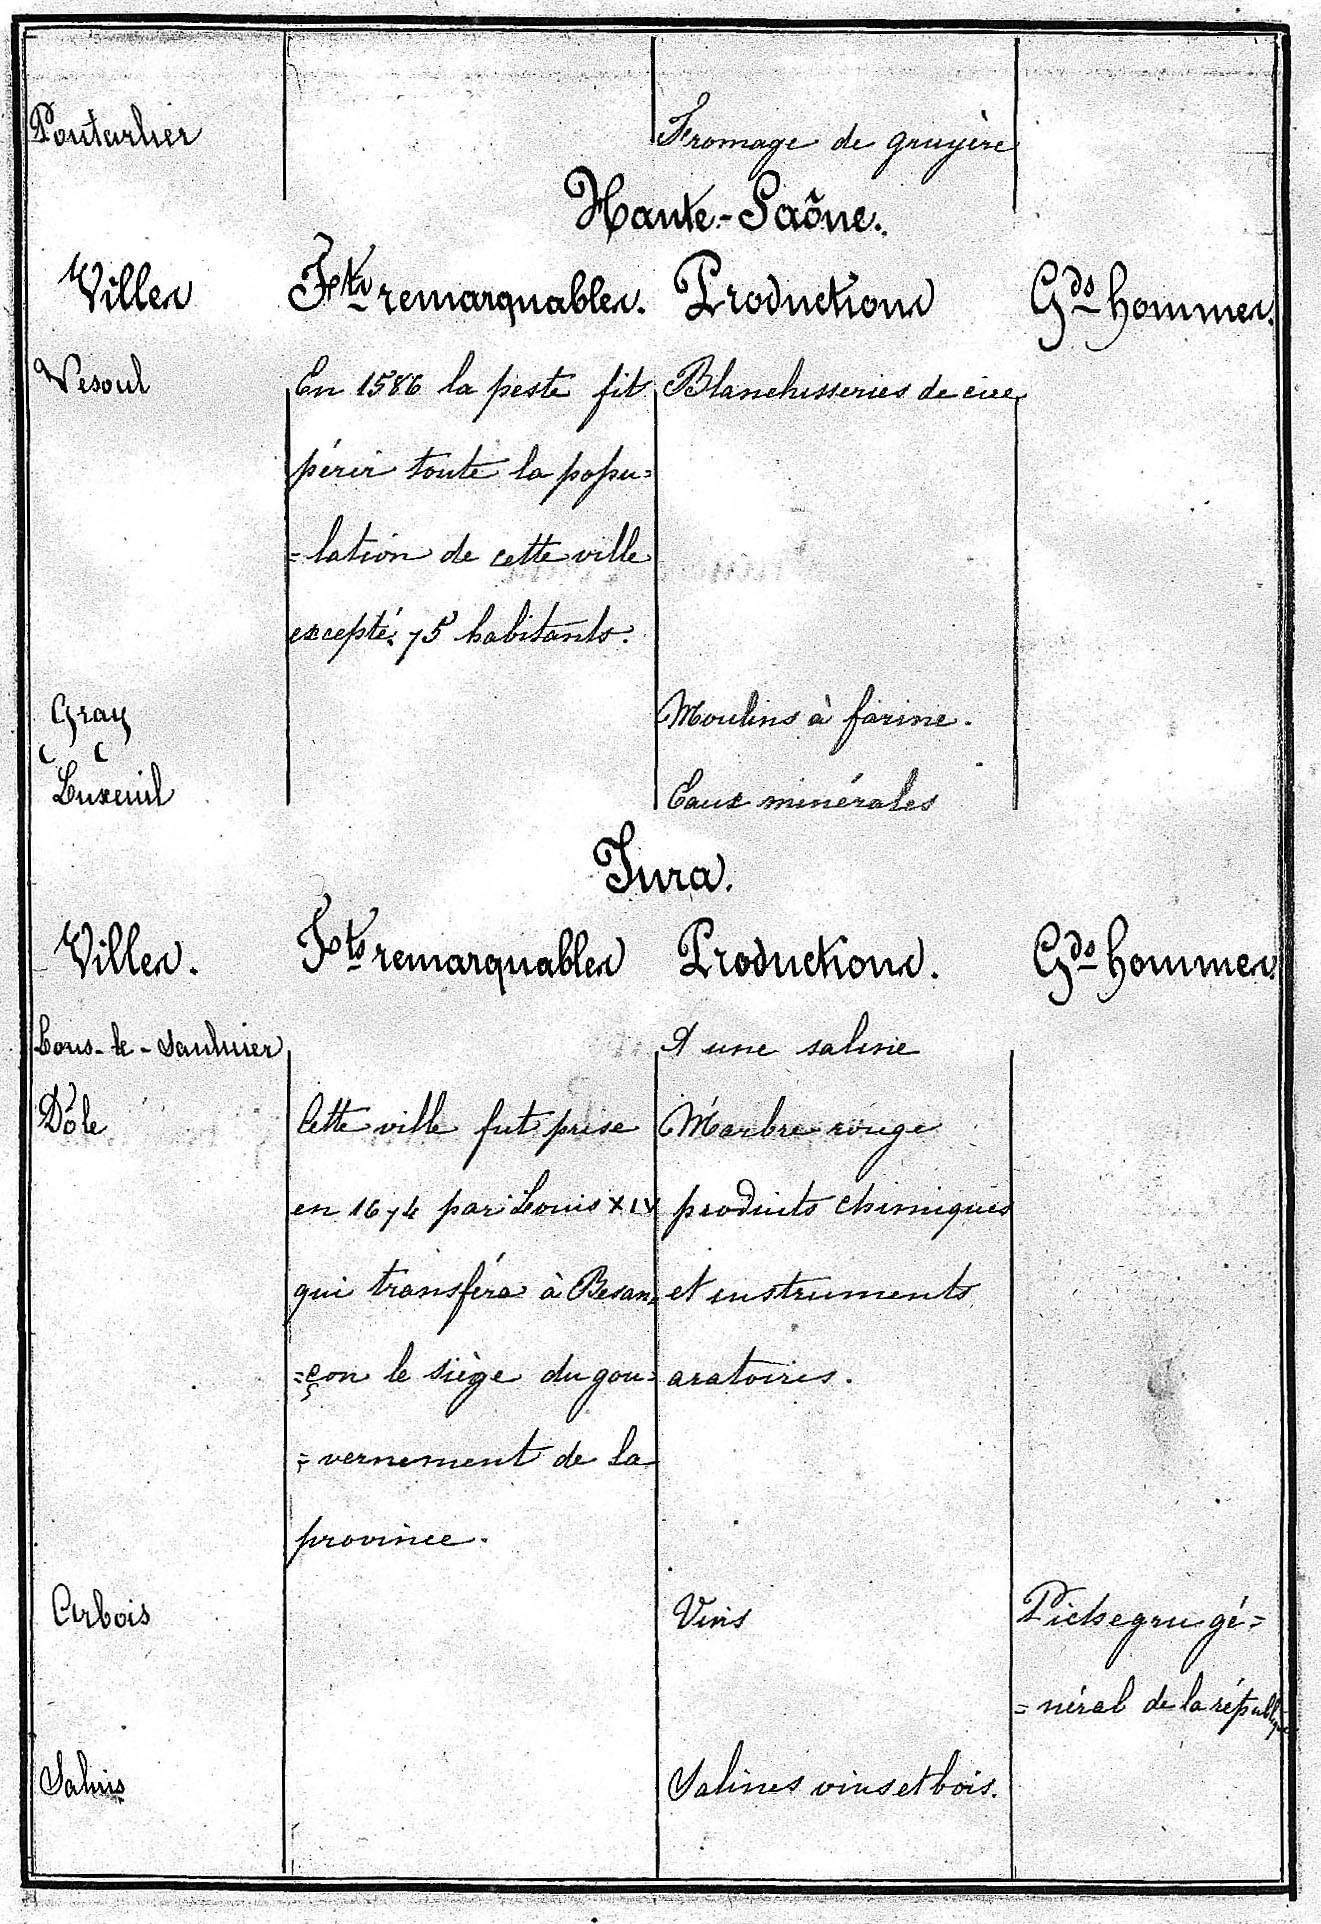 Pontarlier Fromage de gruyère
Haute-Saône.
Villes Fts remarquables. Productions Gds hommes.
Vesoul En 1586 la peste fit Blanchisseries de cire
périr toute la popu=
=lation de cette ville
excepté 75 habitants.
Gray Moulins à farine.
Luxeuil Eaux minérales
Jura.
Villes. Fts remarquables Productions. Gds hommes
Lons-le-Saulnier A une saline
Dôle Cette ville fut prise Marbre rouge
en 1674 par Louis XIV produits chimiques
qui transféra à Besan= et instruments
=çon le siège du gou= aratoires.
=vernement de la
province.
Arbois Vins Pichegru gé=
=néral de la république
Salins Salines vins et bois.